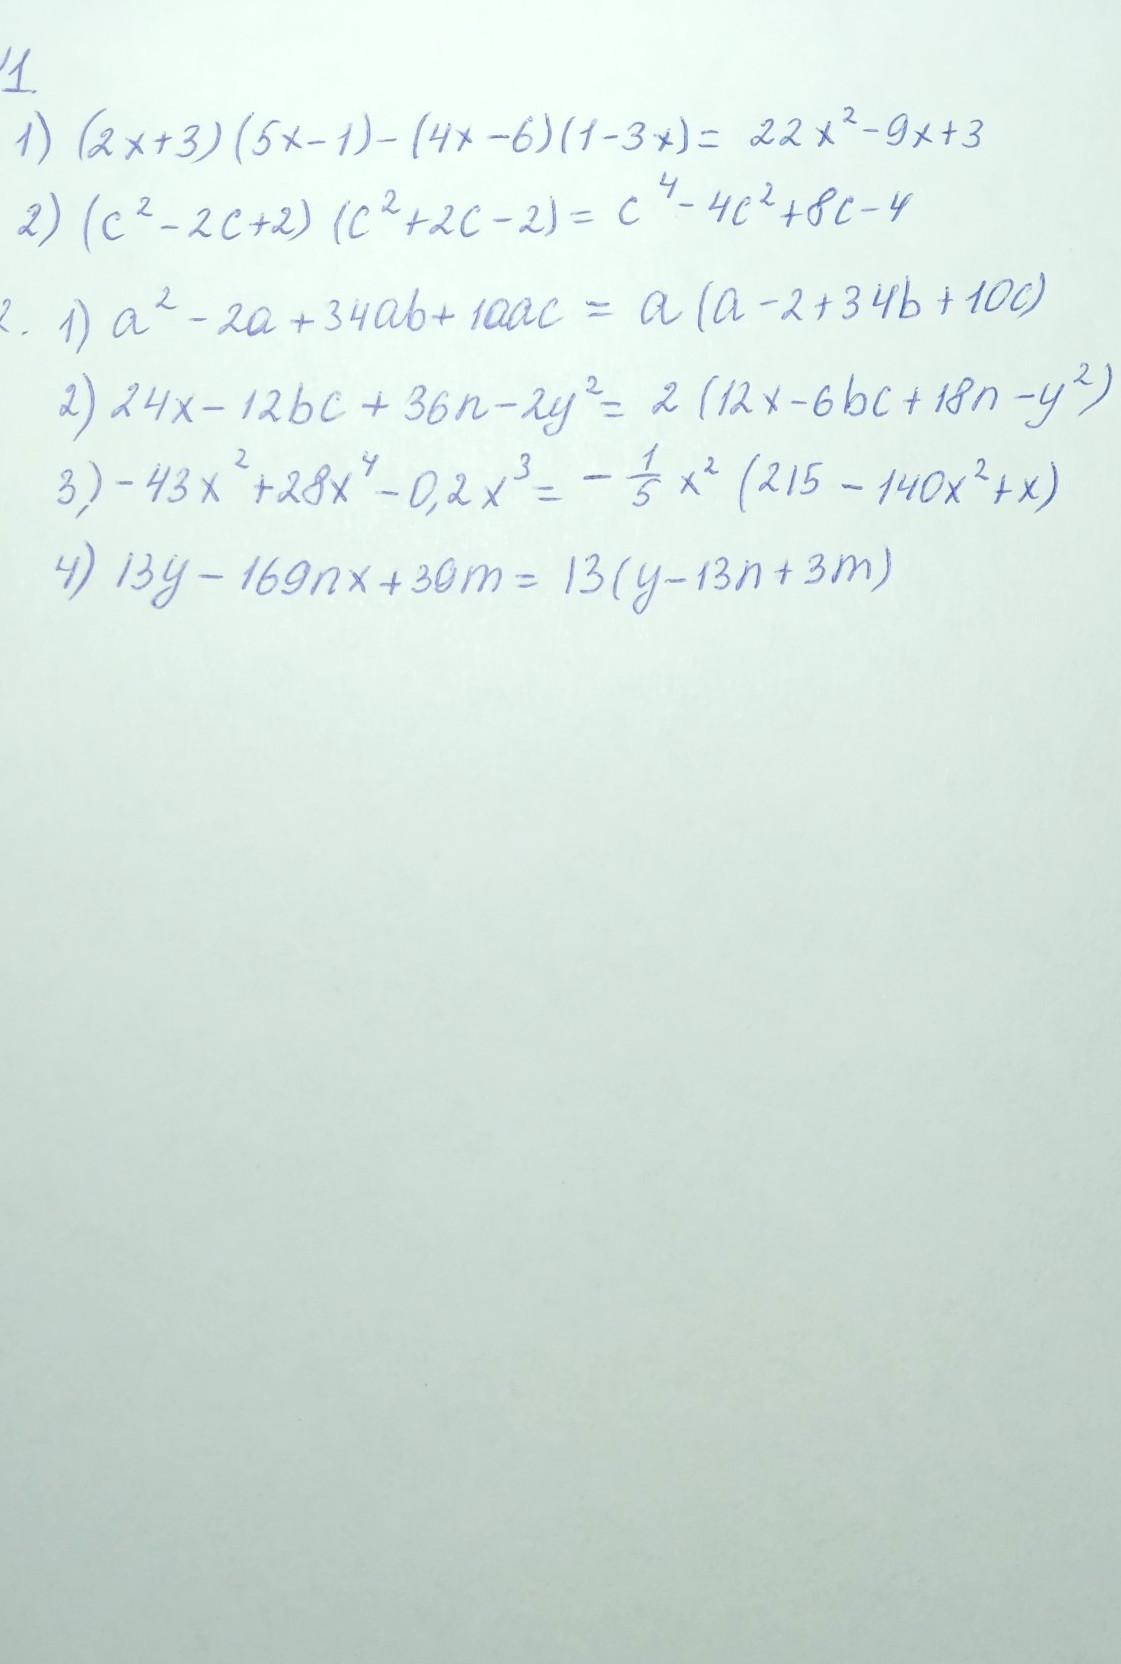 №1.
1) (2x+3)(5x-1)-(4x-6)(1-3x)= 22x²-9x+3
2) (c²-2c+2)(c²+2c-2)= c⁴-4c²+8c-4
2. 1) a²-2a+34ab+10ac = a(a-2+34b+10c)
2) 24x-12bc+36n-2y²= 2(12x-6bc+18n-y²)
3) -43x²+28x⁴-0,2x³= -1/5 x² (215-140x²+x)
4) 13y-169nx+39m= 13(y-13n+3m)